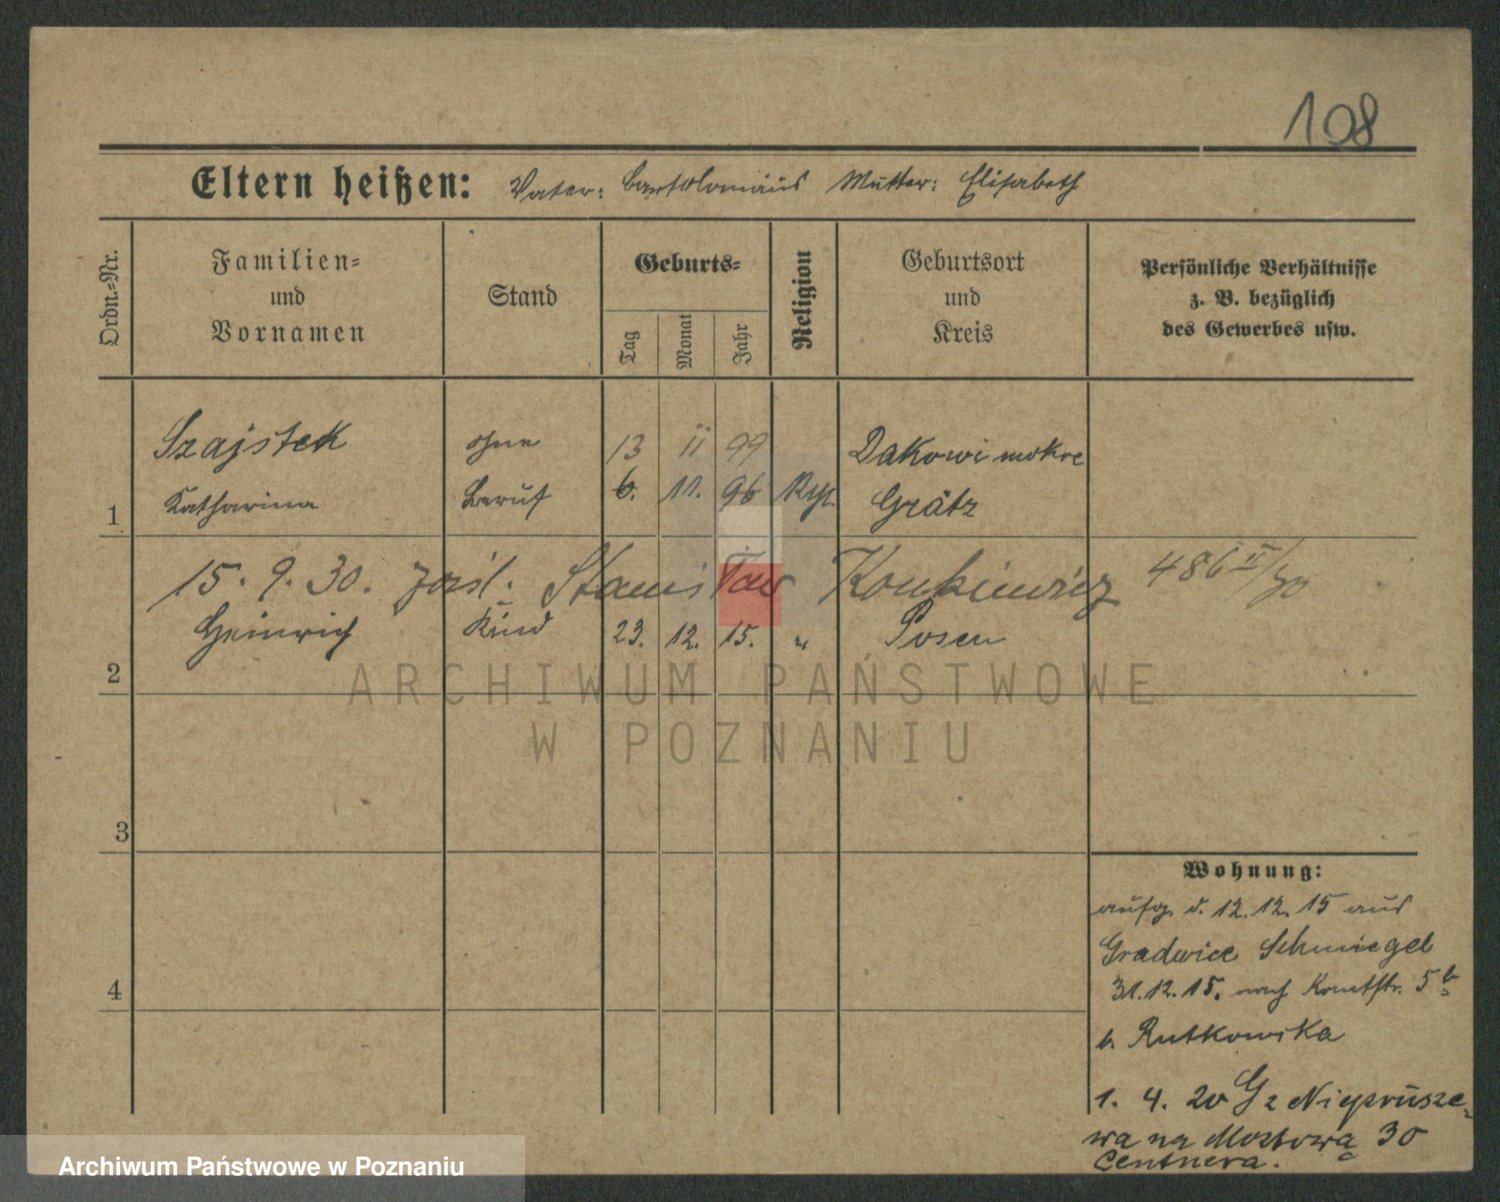 108
Eltern heißen: Vater: Bartolomäus Mutter: Elisabeth
Ordn.-Nr.
Familien-
und
Vornamen
Stand
Geburts-
Tag
Monat
Jahr
Religion
Geburtsort
und
Kreis
Persönliche Verhältnisse
z. B. bezüglich
des Gewerbes usw.
Szajstek ohne 13 II 99 Dakowi mokre
1 Katharina Beruf 6. 11. 96 Grätz
15. 9. 30. Stanisław 486
2 Heinrich Kind 23. 12. 15. " Posen
3
4
Wohnung:
d. 12. 12. 15 aus
Gradwice Schmiegel
31. 12. 15. nach 5 b
b. Rutkowska
1. 4. 20
wa na Mostową 30
Centnera.
ARCHIWUM PAŃSTWOWE
W POZNANIU
Archiwum Państwowe w Poznaniu